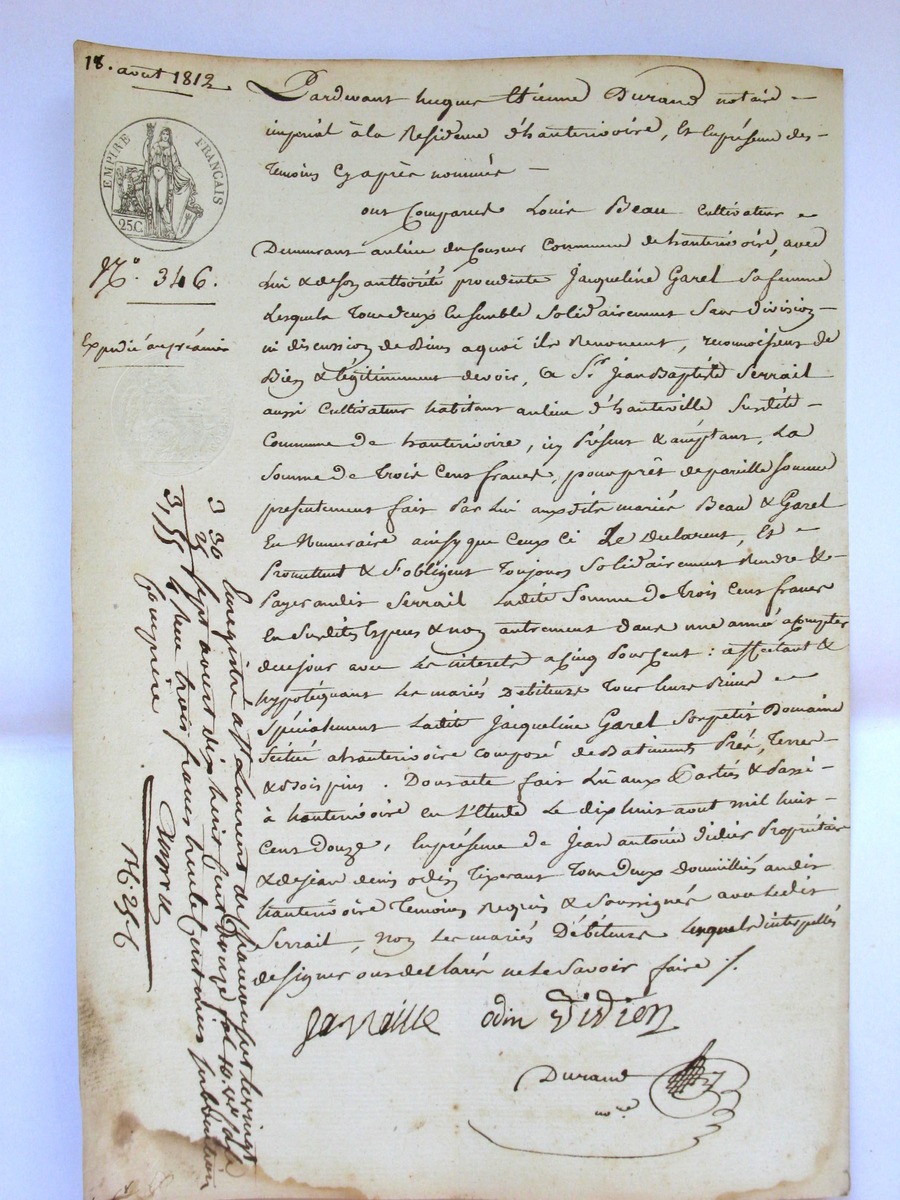 18. aout 1812
EMPIRE FRANÇAIS
25C.
N.o 346.
Expedié au créancier
Pardevant hugues Etienne Durand notaire
imperial à la Residence d'hauterivoire, Et En présence des
Temoins Cy après nommés
ont Comparus Louis Beau Cultivateur
Demeurant au lieu du commune de hauterivoire, avec
lui & de son authorité procedente Jacqueline Garel sa femme
Lesquels Tous deux Ensemble Solidairement Sans division
ni discussion de Biens a quoi ils Renoncent, reconnoissent
Bien & légitimement devoir, a Sr. Jean Baptiste Serrail
aussi Cultivateur habitant au lieu d'hauteville Susdite
Commune de hauterivoire, icy Présent & acceptant, La
Somme de Trois Cent francs, pour prêt de pareille somme
présentement fait Par Lui auxdits mariés Beau & Garel
En Numeraire ainsy que Ceux Ci Le declarent, Et
Promettent & S'obligent Toujours Solidairement Rendre &
Payer audit Serrail Ladite Somme de Trois Cent francs
En Susdites Especes & non autrement dans une année a Compter
de ce jour avec Les interets a Cinq Pour Cent : affectant &
hypotéquant Les mariés Debiteurs Tous leurs Biens
Spécialement Ladite Jacqueline Garel Son petit Domaine
Scitué a hauterivoire composé de Batiments Prés, Terres
& Bois pins. Dont acte fait Lu aux Parties & Passé
à hauterivoire en L'Etude Le dix huit aout mil huit
Cent Douze, En présence de Jean antoine Didier Propriétaire
& de Jean denis odin Tixerant Tous Deux Domiciliés audit
hauterivoire Temoins Requis & Soussignés avec Ledit
Serrail, Non Les mariés Débiteurs Lesquels interpellés
de Signer ont declarés ne le Savoir faire ./.
odin Didier
Durand
no.re
3 30
25
3,55
Enregistré a St Laurent de chamousset le vingt
sept aout dix huit cent douze
trois francs trente Cent mes subvention